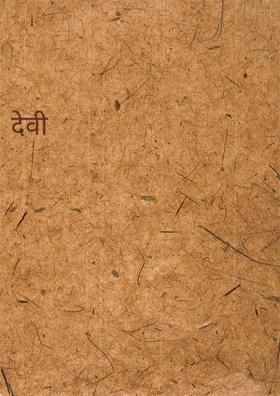 देवी